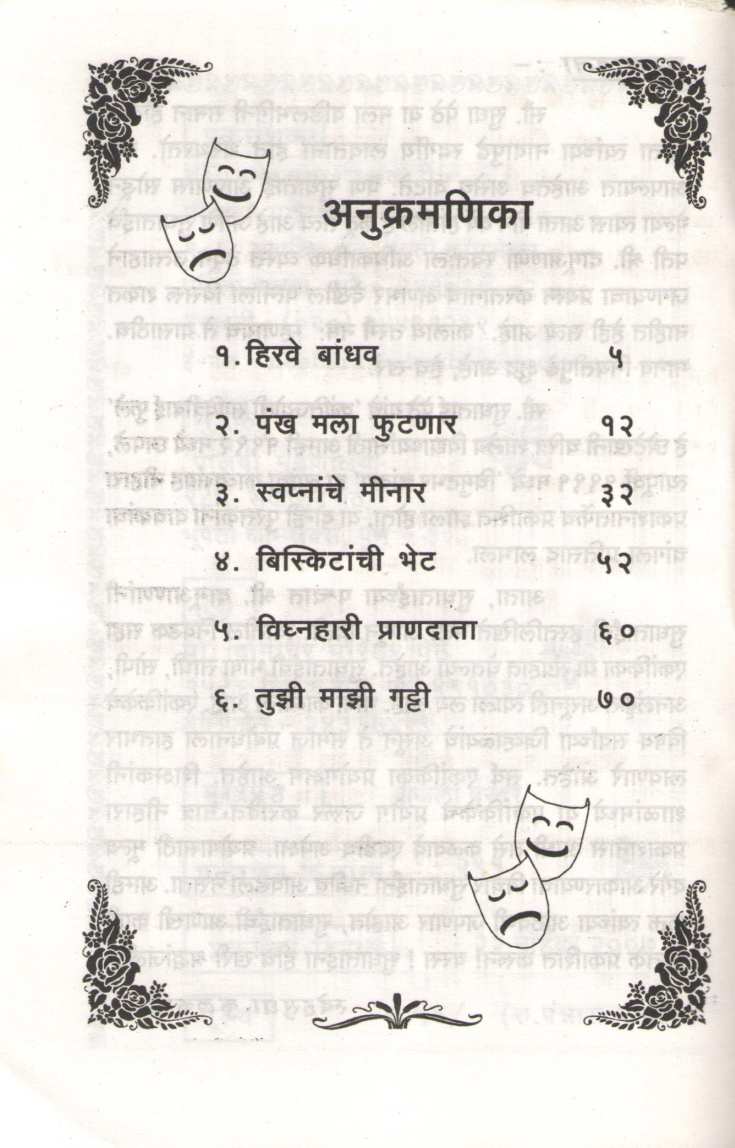 अनुक्रमणिका
१.हिरवे बांधव ५
२. पंख मला फुटणार १२
३. स्वप्नांचे मीनार ३२
४. बिस्किटांची भेट ५२
५. विघ्नहारी प्राणदाता ६०
६. तुझी माझी गट्टी ७०